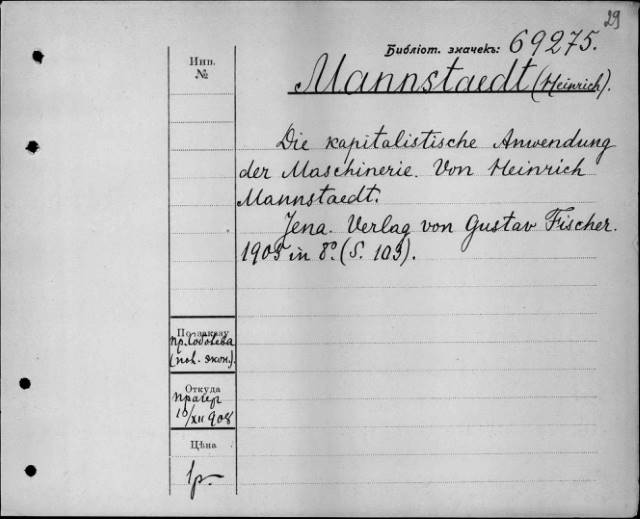 29
Библіот. значекъ: 69275.
Инв.
№
Mannstaedt (Heinrich).
Die kapitalistische Anwendung
der Maschinerie. Von Heinrich
Mannstaedt.
Jena. Verlag von Gustav Fischer.
1905 in 8º. (S. 103).
По заказу
пр.
(пов. экон.).
Откуда
Прагер
10/XII 908
Цѣна
1р.